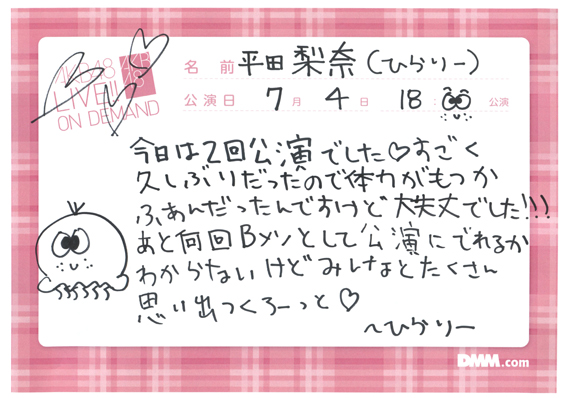 AKB48
LIVE!!
ON DEMAND
AKB
48
名 前 平田梨奈(ひらりー)
公演日 7月 4日 18: 公演
今日は2回公演でした♡すごく
久しぶりだったので体力がもつか
ふあんだったんですけど大丈夫でした!!!
あと何回Bメンとして公演にでれるか
わからないけどみんなとたくさん
思い出つくろーっと♡
〜ひらりー
DMM.com